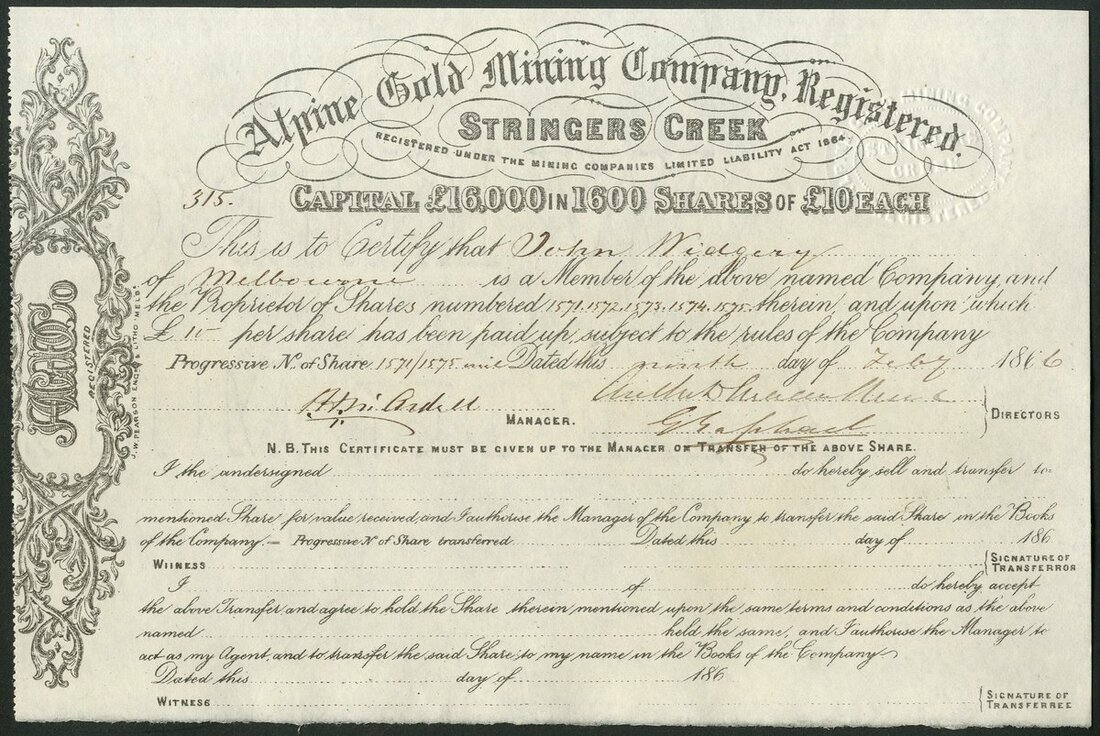 Alpine Gold Mining Company, Registered.
STRINGERS CREEK
REGISTERED UNDER THE MINING COMPANIES LIMITED LIABILITY ACT 1864
315.
CAPITAL £16,000 IN 1600 SHARES OF £10 EACH
This is to Certify that John Widgery
of Melbourne is a Member of the above named Company, and
the Proprietor of Shares numbered 1571.1572.1573.1574.1575. therein, and upon which
£ per share has been paid up, subject to the rules of the Company
Progressive No. of Share 1571/1575 Dated this ninth day of Feby 1866
MANAGER.
G Raphael
DIRECTORS
N.B. THIS CERTIFICATE MUST BE GIVEN UP TO THE MANAGER ON TRANSFER OF THE ABOVE SHARE.
I the undersigned do hereby sell and transfer to
mentioned Share for value received, and I authorise the Manager of the Company to transfer the said Share in the Books
of the Company.— Progressive No. of Share transferred Dated this day of 186
WITNESS SIGNATURE OF TRANSFERROR
I of do hereby accept
the above Transfer and agree to hold the Share therein mentioned upon the same terms and conditions as the above
named held the same, and I authorise the Manager to
act as my Agent, and to transfer the said Share, to my name in the Books of the Company.
Dated this day of 186
WITNESS SIGNATURE OF TRANSFEREE
AGMCo
REGISTERED
J.W. PEARSON ENGR. & LITHO. MELB.